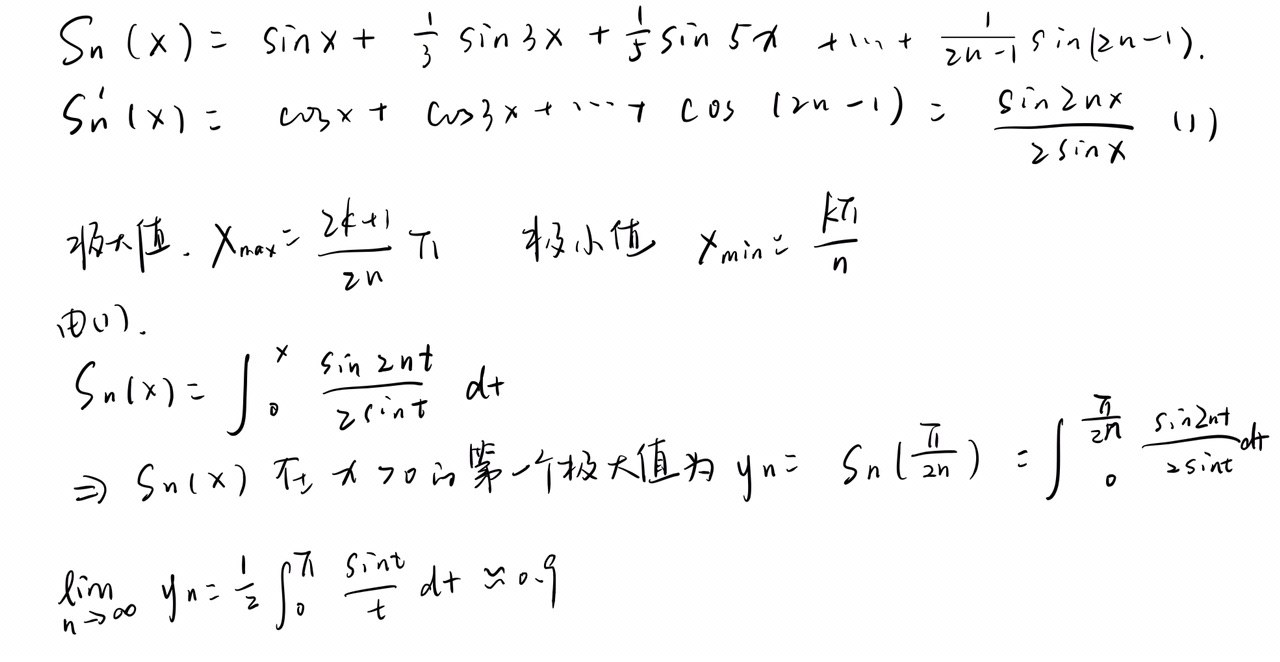 Sn(x) = sinx + 1/3 sin3x + 1/5 sin5x + ... + 1/(2n-1) sin(2n-1).
Sn'(x) = cosx + cos3x + ... + cos(2n-1) = sin2nx/(2sinx) (1)
极大值. Xmax = (2k+1)/(2n) π 极小值 Xmin = kπ/n
由(1).
Sn(x) = ∫_0^x sin2nt/(2sint) dt
⇒ Sn(x) 在 x>0 的第一个极大值为 yn = Sn(π/2n) = ∫_0^(π/2n) sin2nt/(2sint) dt
lim_(n→∞) yn = 1/2 ∫_0^π sint/t dt ≈ 0.9